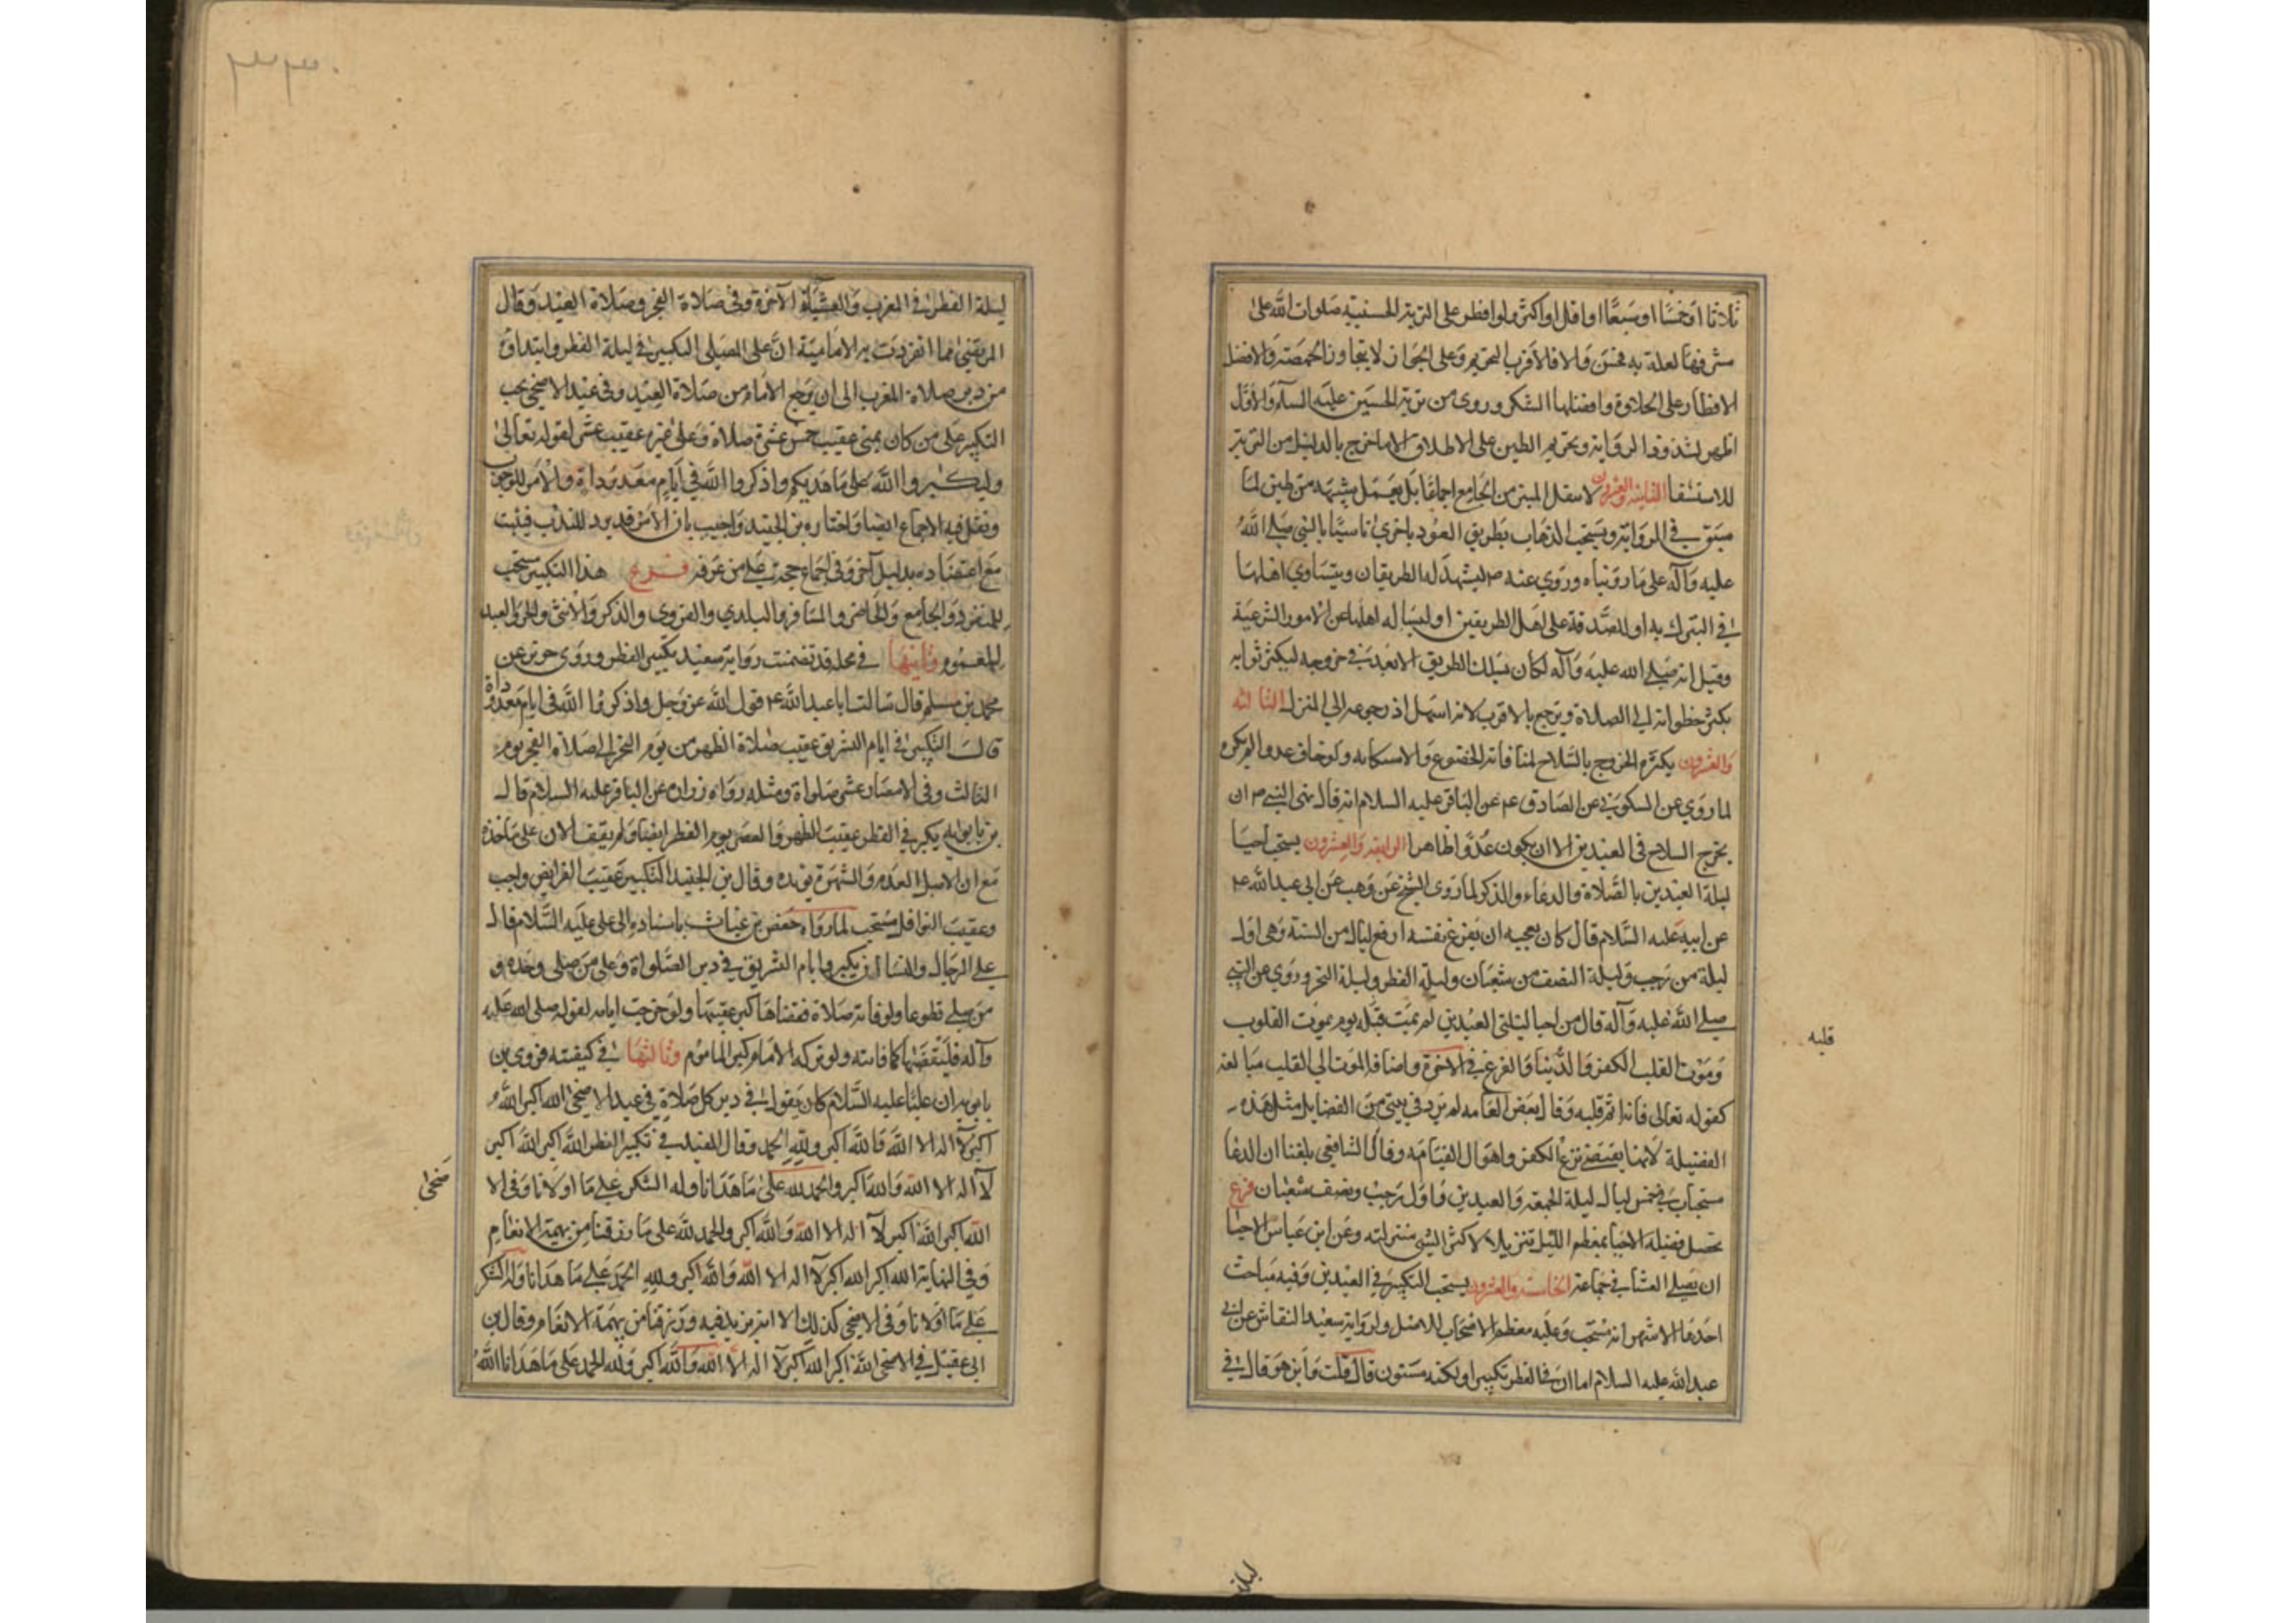 ثلاثا اوخمسا اوسبعا او اقل او اكثر ولو افطر على التربة الحسينية صلوات الله على
مشرفها لعلة به فحسن والا فالاقرب التحريم وعلى الجواز لا يتجاوز الحمصة والافضل
الافطار على الحلاوة وافضلها السكر وروى من تربة الحسين عليه السلم والاول
اظهر لشذوذ الرواية وتحريم الطين على الاطلاق الا ما خرج بالدليل من التربة
للاستشفا الثانية والعشرون لاينقل المنبر من الجامع اجماعا بل يعمل شبهه من طين لما
سبق في الرواية ويستحب الذهاب بطريق العود باخرى تاسيا بالنبي صلى الله
عليه وآله على ما رويناه وروي عنه ص ليشهد له الطريقان ويتساوي اهلهما
في التبرك به او للصدقة على اهل الطريقين او ليساله اهلها عن الامور الشرعية
وقيل انه صلى الله عليه وآله كان يسلك الطريق الابعد في خروجه ليكثر ثوابه
بكثرة خطواته الى الصلاة ويرجع بالاقرب لانه اسهل اذ رجوعه الى المنزل الثالثه
والعشرون يكره الخروج بالسلاح لمنافاته الخضوع والاستكانه ولو خاف عدوا لم يكره
لما روي عن السكوني عن الصادق ع عن الباقر عليه السلام انه قال نهى النبي ص ان
يخرج السلاح في العيدين الا ان يكون عدوا ظاهرا الرابعة والعشرون يستحب احيا
ليلة العيدين بالصلاة والدعاء والذكر لما روى الشيخ عن وهب عن ابي عبدالله ع
عن ابيه عليه السلام قال كان يعجبه ان يفرغ نفسه اربع ليال من السنة وهي اول
ليلة من رجب وليلة النصف من شعبان وليلة الفطر وليلة النحر وروي عن النبي
صلى الله عليه وآله قال من احيا ليلتى العيدين لم يمت قلبه يوم يموت القلوب
قلبه
وموت القلب الكفر في الدنيا والفزع في الآخرة واضافة الموت الى القلب مبالغة
كقوله تعالى فانه اثم قلبه وقال بعض العامه لم يرد في شي من الفضايل مثل هذه
الفضيلة لانها يقتضى نزع الكفر واهوال القيامه وقال الشافعي بلغنا ان الدعا
مستجاب في خمس ليال ليلة الجمعه والعيدين واول رجب ونصف شعبان فرع
تحصل فضيلة الاحيا بمعظم الليل تنزيلا لاكثر الشى منزلته وعن ابن عباس الاحيا
ان يصلى العشا في جماعه الخامسه والعشرون يستحب التكبير في العيدين وفيه مباحث
احدها الاشهر انه مستحب وعليه معظم الاصحاب للاصل ولرواية سعيد النقاش عن ابي
عبدالله عليه السلام اما ان في الفطر تكبيرا ولكنه مسنون قال قلت واين هو قال في
ليلة
ليلة الفطر في المغرب والعشاء الآخرة وفي صلاة الفجر وصلاة العيد وقال
المرتضى مما انفردت به الامامية ان على المصلي التكبير في ليلة الفطر وابتداؤه
من دبر صلاة المغرب الى ان يرجع الامام من صلاة العيد وفي عيد الاضحى يجب
التكبير على من كان بمنى عقيب خمس عشرة صلاة وعلى غيره عقيب عشر لقوله تعالى
وليكبروا الله على ما هديكم واذكروا الله في ايام معدوداة والامر للوجوب
ونقل فيه الاجماع ايضا واختاره بن الجنيد واجيب بان الامر قد يرد للندب فيثبت
مع اعتضاده بدليل آخر وفي اجماع حجة على من عرفه فرع هذا التكبير مستحب
للمنفرد والجامع والحاضر والمسافر والبلدي والقروي والذكر والانثى والحر والعبد
للعموم وثانيها في محله قد تضمنت رواية سعيد تكبير الفطر وروى حريز عن
محمد بن مسلم قال سالت ابا عبدالله ع قول الله عز وجل واذكروا الله في ايام معدوداة
قال التكبير في ايام التشريق عقيب صلاة الظهر من يوم النحر الى صلاة الفجر يوم
الثالث وفي الامصار عشر صلواة ومثله رواه زرارة عن الباقر عليه السلام قال
بن بابويه يكبر في الفطر عقيب الظهر والعصر يوم الفطر ايضا ولم يقف الان على ماخذه
مع ان الاصل العدم والشهرة يؤيده وقال بن الجنيد التكبير عقيب الفرايض واجب
وعقيب النوافل مستحب لما رواه حفص بن غياث باسناده الى علي عليه السلام قال
على الرجال والنساء ان يكبروا ايام التشريق في دبر الصلواة وعلى من صلى وحده و
من صلى تطوعا ولو فاته صلاة فقضاها كبر عقيبها ولو خرجت ايامه لقوله صلى الله عليه
وآله فليقضها كما فاتته ولو تركه الامام كبر الماموم وثالثها في كيفيته فروى بن
بابويه ان عليا عليه السلام كان يقول في دبر كل صلاة في عيد الاضحى الله اكبر الله
اكبر لا اله الا الله والله اكبر ولله الحمد وقال المفيد في تكبير الفطر الله اكبر الله اكبر
لا اله الا الله والله اكبر والحمد لله على ما هدانا وله الشكر على ما اولانا وفي الا
ضحى
الله اكبر الله اكبر لا اله الا الله والله اكبر والحمد لله على ما رزقنا من بهيمة الانعام
وفي النهاية الله اكبر الله اكبر لا اله الا الله والله اكبر ولله الحمد على ما هدانا وله الشكر
على ما اولانا وفي الاضحى كذلك الا انه يزيد فيه ورزقنا من بهيمة الانعام وقال بن
ابي عقيل في الاضحى الله اكبر الله اكبر لا اله الا الله والله اكبر ولله الحمد على ما هدانا الله